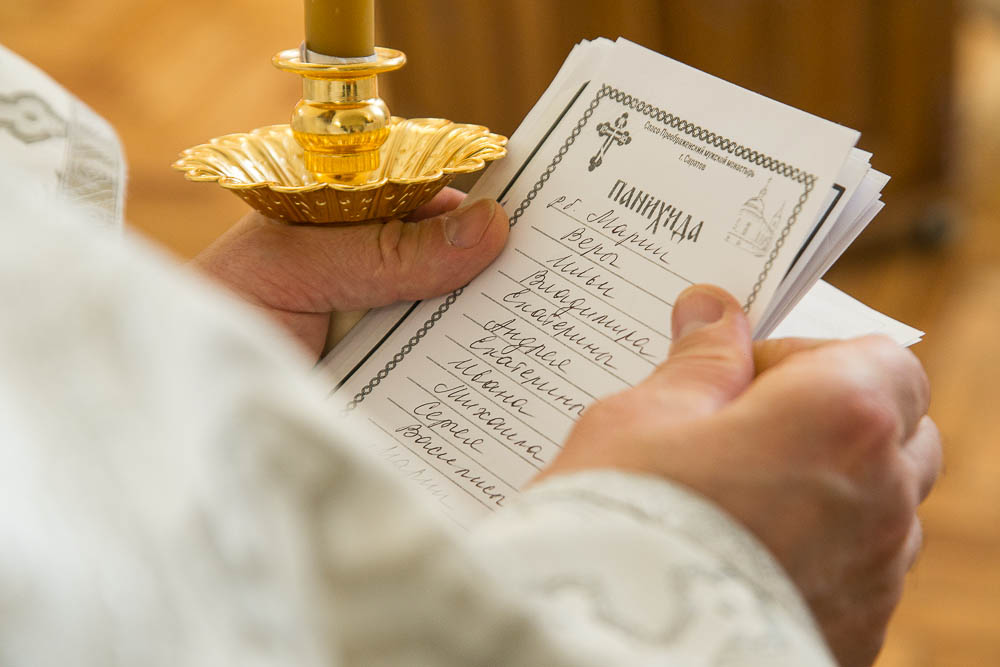 Спасо-Преображенский мужской монастырь
г. Саратов
ПАНИХИДА
р.б. Марии
Веры
Ильи
Владимира
Екатерины
Андрея
Екатерины
Ивана
Михаила
Сергея
Василисы
Марии